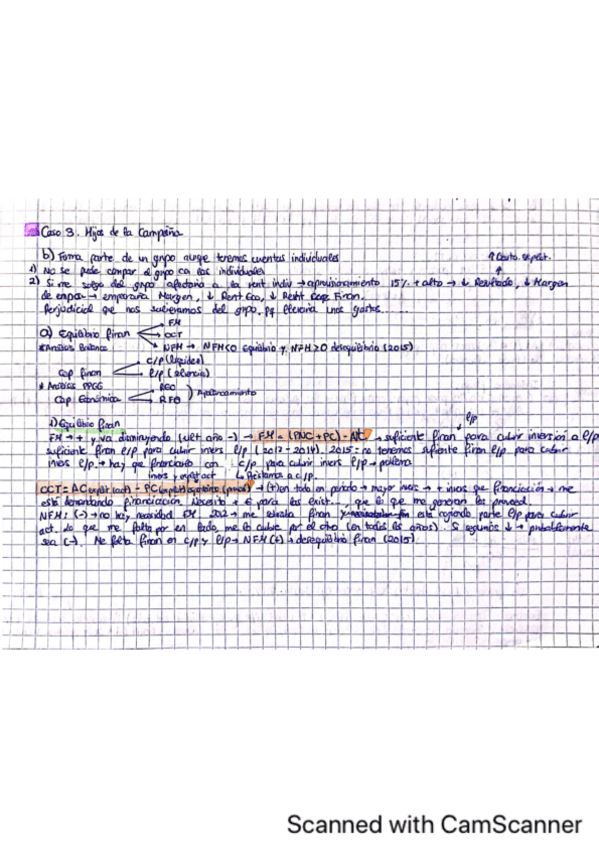 Caso 3. Hijos de la Campiña
b) Forma parte de un grupo aunque tenemos cuentas individuales
1) No se puede compar el grupo con las individuales
↑ Coste explot.
2) Si me salgo del grupo afectaria a la rent indiv → aprovisionamiento 15% + alto → ↓ Resultado, ↓ Margen
de → Margen, ↓ Rent Eco, ↓ Rent Finan.
Perjudicial que nos del grupo. pq unos gastos......
a) Equilibrio finan
FM
CCT
NFM → NFM<0 equilibrio y NFM>0 desequilibrio (2015)
* Análisis Balance
Cap finan
c/p (liquidez)
l/p (solvencia)
* Análisis PPGG
Cap Económica
RCO
RFO
Apalancamiento
1) Equilibrio finan
l/p
FM → + y va disminuyendo (ult año -) → FM = (PNC + PC) - ANC → suficiente finan para cubrir inversión a l/p
suficiente finan l/p para cubrir invers l/p (2012 - 2014). 2015 = no tenemos sufiente finan l/p para cubrir
invers l/p → hay que financiarlo con c/p para cubrir invers l/p → problema
invers y act a c/p.
CCT = AC - PC → (+) en todo → mayor invers → + invers que financiación → me
está demandando financiación. Necesito + € para las exist... que lo que me generan los proveed.
NFM: (-) → no hay necesidad FM. 2012 → me finan y está cogiendo parte l/p para cubrir
act. Lo que me falta por en lado, me lo cubre por el otro (en todos los años). Si seguimos ↓ → probablemente
sea (-). Me falta finan en c/p y l/p → NFM (+) → desequilibrio finan (2015)
Scanned with CamScanner